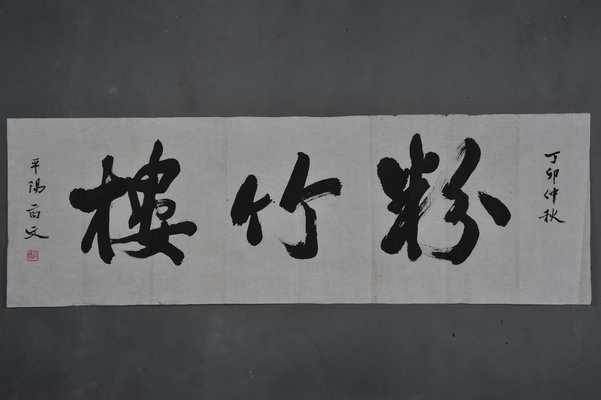 丁卯仲秋
粉竹樓
平陽蕭文